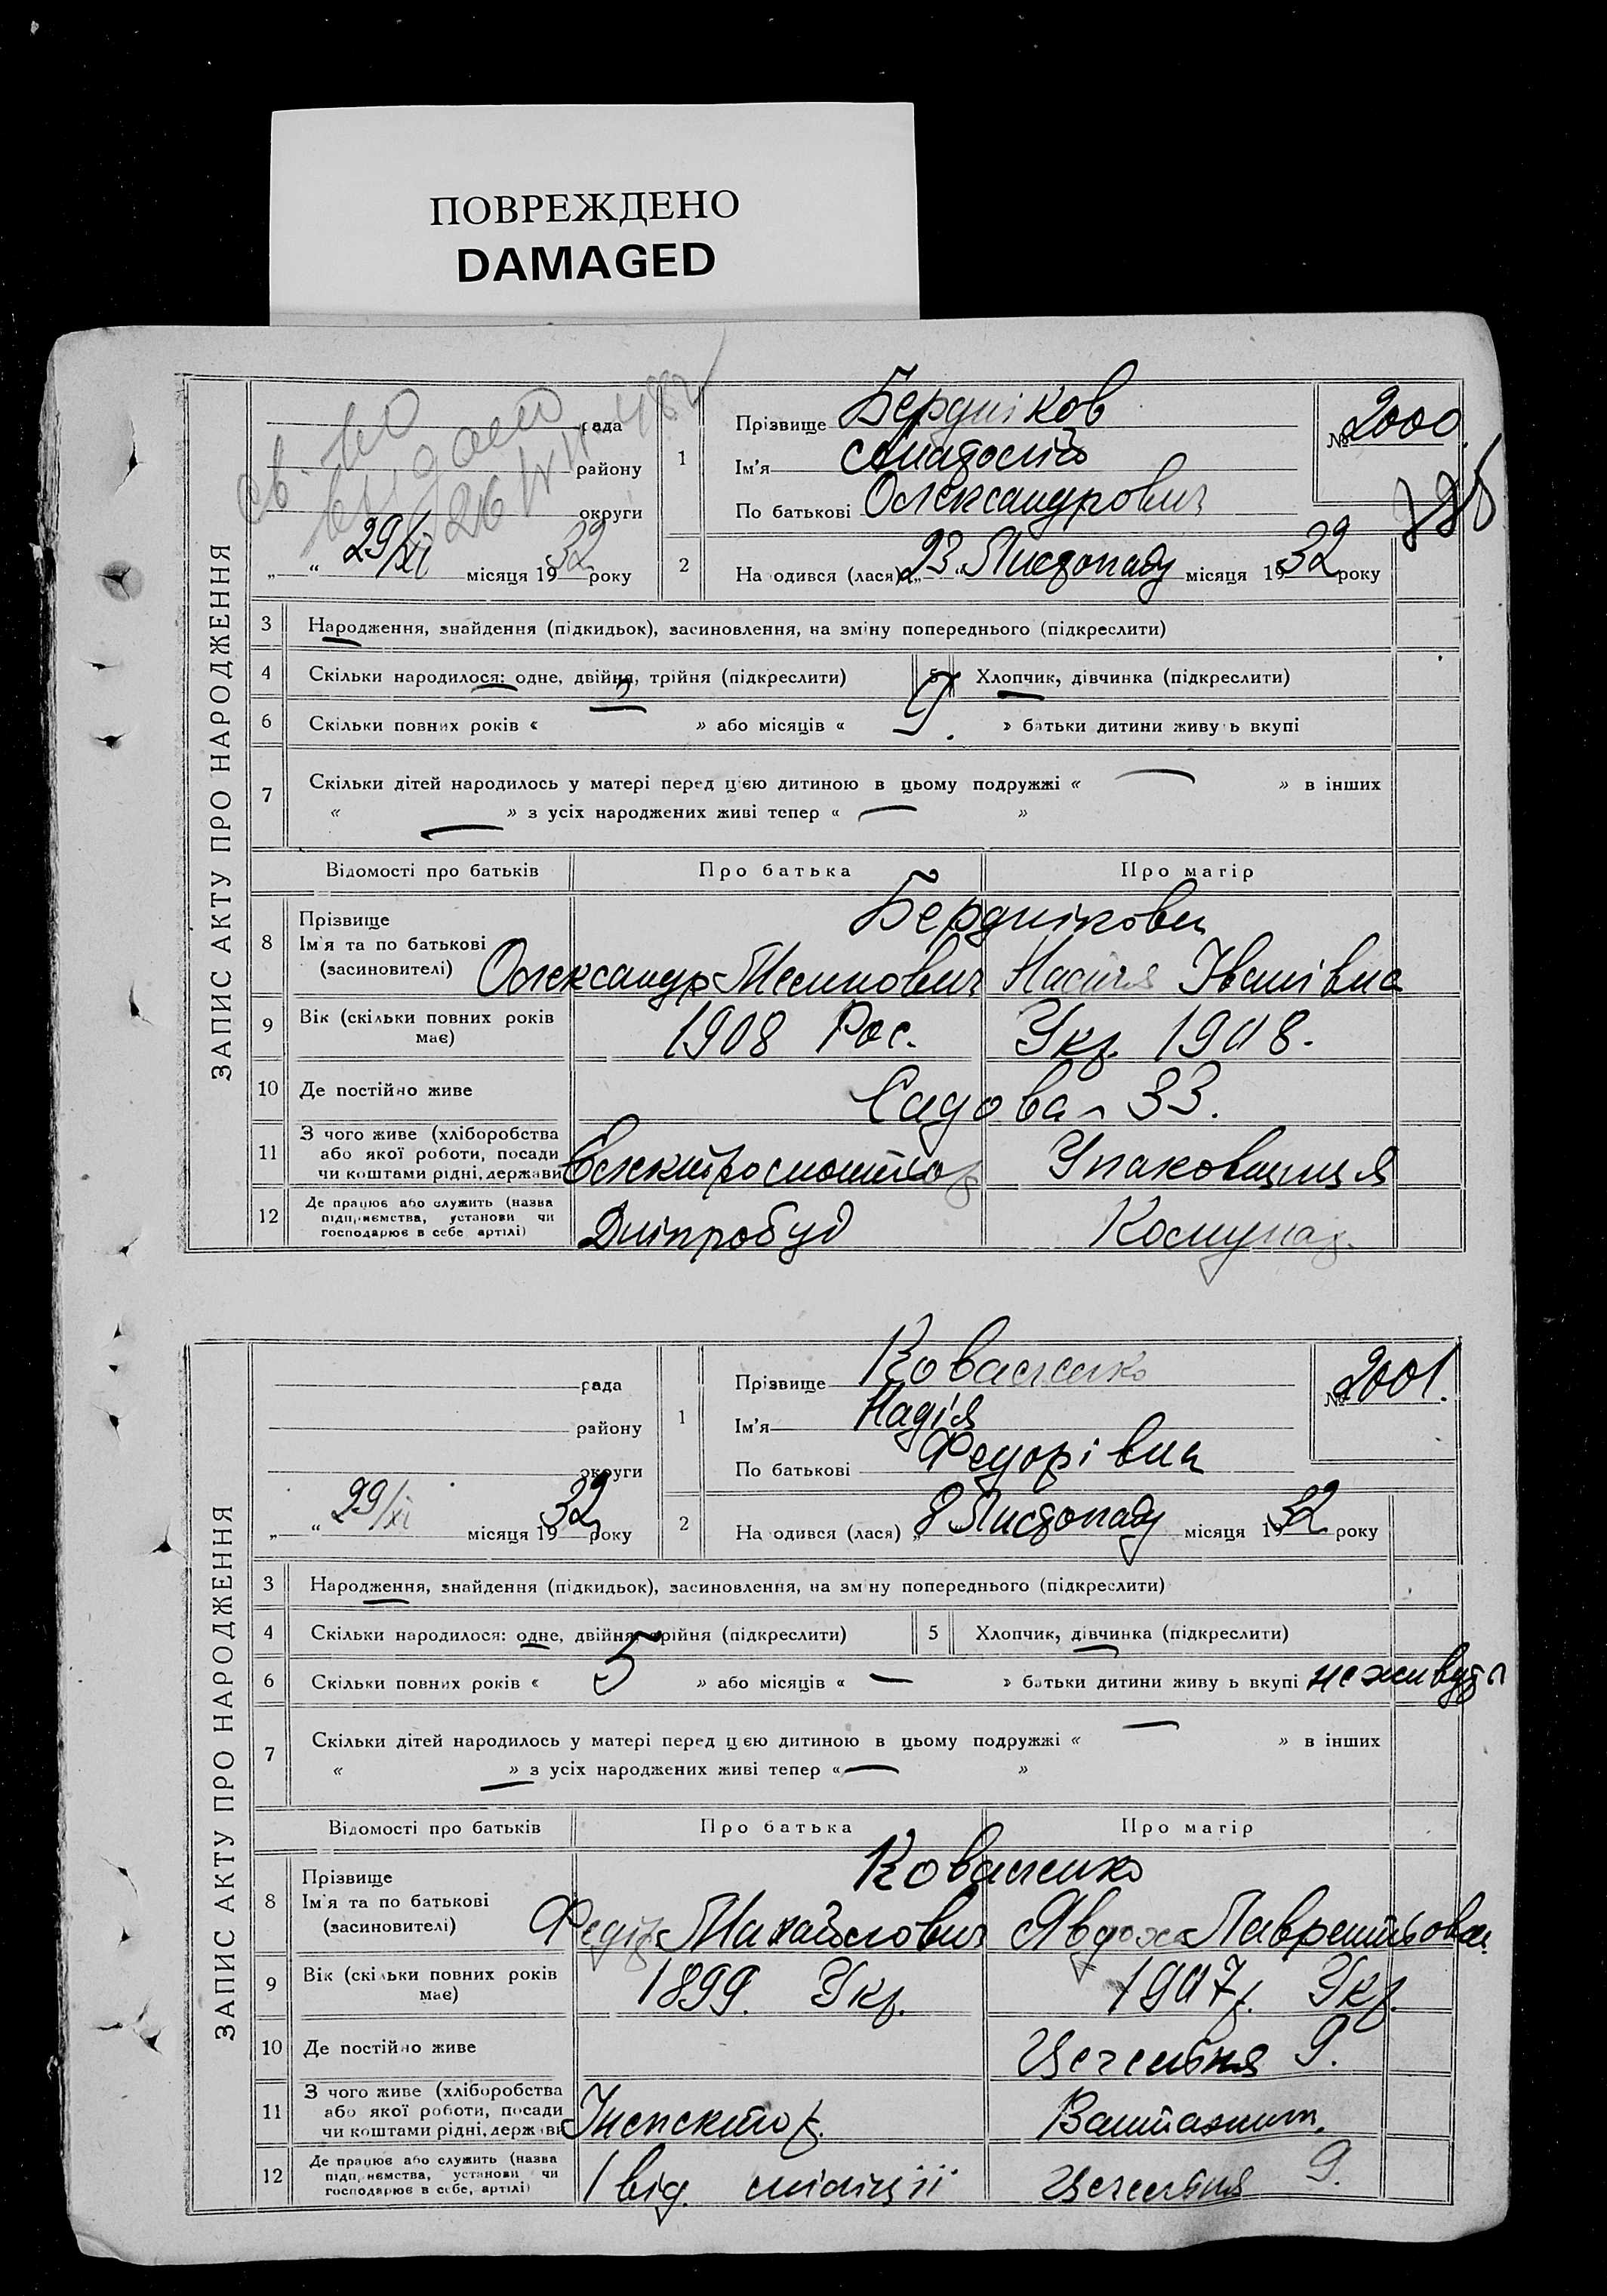 ПОВРЕЖДЕНО
DAMAGED
ЗАПИС АКТУ ПРО НАРОДЖЕННЯ
Св. во
видано
рада
району
округи
„ “ 29/XI місяця 1932 року
1
Прізвище Бердніков
Ім'я Анатолій
По батькові Олександрович
№ 2000.
2
На одився (лася) „23“ Листопаду місяця 1932 року
3 Народження, знайдення (підкидьок), засиновлення, на зміну попереднього (підкреслити)
4 Скільки народилося: одне, двійня, трійня (підкреслити) 5 Хлопчик, дівчинка (підкреслити)
6 Скільки повних років « » або місяців « 9. » батьки дитини живу ь вкупі
7 Скільки дітей народилось у матері перед цією дитиною в цьому подружжі « — » в інших
« — » з усіх народжених живі тепер « — »
Відомості про батьків Про батька Про матір
8 Прізвище
Ім'я та по батькові
(засиновителі)
Берднікови
Олександр Настя Іванівна
9 Вік (скільки повних років має)
1908 Рос. Укр. 1908.
10 Де постійно живе
Садова 33.
11 З чого живе (хліборобства
або якої роботи, посади
чи коштами рідні, держави
Електромонтьор Упаковщиця
12 Де працює або служить (назва
підприємства, установи чи
господарює в себе артілі)
Дніпробуд Комунар.
ЗАПИС АКТУ ПРО НАРОДЖЕННЯ
рада
району
округи
„ “ 29/XI місяця 1932 року
1
Прізвище Коваленко
Ім'я Надія
По батькові Федорівна
№ 2001.
2
На одився (лася) „8 Листопаду місяця 1932 року
3 Народження, знайдення (підкидьок), засиновлення, на зм ну попереднього (підкреслити)
4 Скільки народилося: одне, двійня, трійня (підкреслити) 5 Хлопчик, дівчинка (підкреслити)
6 Скільки повних років « 5 » або місяців « — » батьки дитини живу ь вкупі не живуть
7 Скільки дітей народилось у матері перед цією дитиною в цьому подружжі « — » в інших
« — » з усіх народжених живі тепер « — »
Відомості про батьків Про батька Про матір
8 Прізвище
Ім'я та по батькові
(засиновителі)
Коваленко
Федір Михайлович Явдоха
9 Вік (скільки повних років має)
1899. Укр. 1907р. Укр.
10 Де постійно живе
9.
11 З чого живе (хліборобства
або якої роботи, посади
чи коштами рідні, держ ви
Інспектор.
12 Де працює або служить (назва
підприємства, установи чи
господарює в себе, артілі)
1 від. міліції 9.